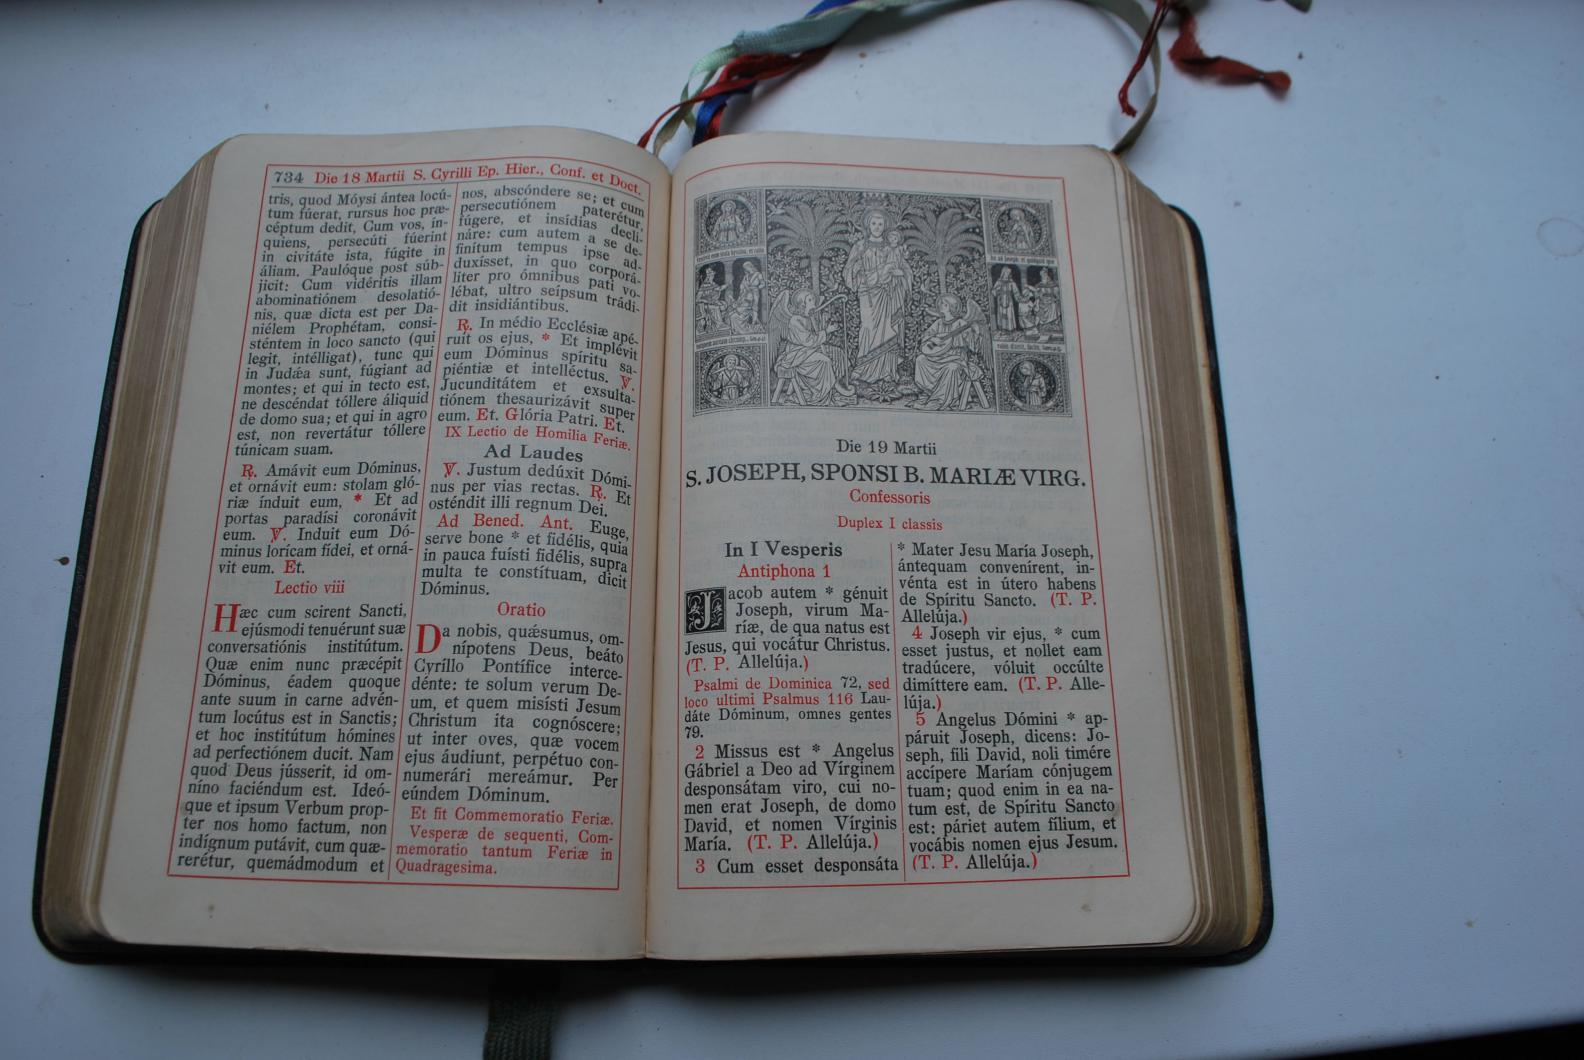 734 Die 18 Martii S. Cyrilli Ep. Hier., Conf. et Doct.
tris, quod Móysi ántea locú-
tum fúerat, rursus hoc præ-
céptum dedit, Cum vos, ín-
quiens, persecúti fúerint
in civitáte ista, fúgite in
áliam. Paulóque post súb-
jicit: Cum vidéritis illam
abominatiónem desolatió-
nis, quæ dicta est per Da-
niélem Prophétam, consi-
sténtem in loco sancto (qui
legit, intélligat), tunc qui
in Judǽa sunt, fúgiant ad
montes; et qui in tecto est,
ne descéndat tóllere áliquid
de domo sua; et qui in agro
est, non revertátur tóllere
túnicam suam.
℟. Amávit eum Dóminus,
et ornávit eum: stolam gló-
riæ índuit eum, * Et ad
portas paradísi coronávit
eum. ℣. Induit eum Dó-
minus lorícam fídei, et orná-
vit eum. Et.
Lectio viii
Hæc cum scirent Sancti,
ejúsmodi tenuérunt suæ
conversatiónis institútum.
Quæ enim nunc præcépit
Dóminus, éadem quoque
ante suum in carne advén-
tum locútus est in Sanctis;
et hoc institútum hómines
ad perfectiónem ducit. Nam
quod Deus jússerit, id om-
níno faciéndum est. Ideó-
que et ipsum Verbum prop-
ter nos homo factum, non
indígnum putávit, cum quæ-
rerétur, quemádmodum et
nos, abscóndere se; et cum
persecutiónem paterétur,
fúgere, et insídias decli-
náre: cum autem a se de-
finítum tempus ipse ad-
duxísset, in quo corporá-
liter pro ómnibus pati vo-
lébat, ultro seípsum trádi-
dit insidiántibus.
℟. In médio Ecclésiæ apé-
ruit os ejus, * Et implévit
eum Dóminus spíritu sa-
piéntiæ et intelléctus. ℣.
Jucunditátem et exsulta-
tiónem thesaurizávit super
eum. Et. Glória Patri. Et.
IX Lectio de Homilia Feriæ.
Ad Laudes
℣. Justum dedúxit Dómi-
nus per vias rectas. ℟. Et
osténdit illi regnum Dei.
Ad Bened. Ant. Euge,
serve bone * et fidélis, quia
in pauca fuísti fidélis, supra
multa te constítuam, dicit
Dóminus.
Oratio
Da nobis, quǽsumus, om-
nípotens Deus, beáto
Cyríllo Pontífice interce-
dénte: te solum verum De-
um, et quem misísti Jesum
Christum ita cognóscere;
ut inter oves, quæ vocem
ejus áudiunt, perpétuo con-
numerári mereámur. Per
eúndem Dóminum.
Et fit Commemoratio Feriæ.
Vesperæ de sequenti, Com-
memoratio tantum Feriæ in
Quadragesima.
Die 19 Martii
S. JOSEPH, SPONSI B. MARIÆ VIRG.
Confessoris
Duplex I classis
In I Vesperis
Antiphona 1
Jacob autem * génuit
Joseph, virum Ma-
ríæ, de qua natus est
Jesus, qui vocátur Christus.
(T. P. Allelúja.)
Psalmi de Dominica 72, sed
loco ultimi Psalmus 116 Lau-
dáte Dóminum, omnes gentes
79.
2 Missus est * Angelus
Gábriel a Deo ad Vírginem
desponsátam viro, cui no-
men erat Joseph, de domo
David, et nomen Vírginis
María. (T. P. Allelúja.)
3 Cum esset desponsáta
* Mater Jesu María Joseph,
ántequam convenírent, in-
vénta est in útero habens
de Spíritu Sancto. (T. P.
Allelúja.)
4 Joseph vir ejus, * cum
esset justus, et nollet eam
tradúcere, vóluit occúlte
dimíttere eam. (T. P. Alle-
lúja.)
5 Angelus Dómini * ap-
páruit Joseph, dicens: Jo-
seph, fili David, noli timére
accípere Maríam cónjugem
tuam; quod enim in ea na-
tum est, de Spíritu Sancto
est: páriet autem fílium, et
vocábis nomen ejus Jesum.
(T. P. Allelúja.)